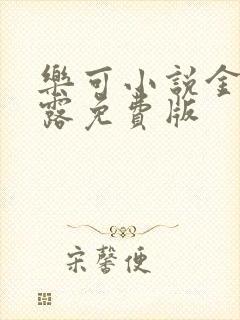 樂可小說金
露免費版
宋馨便